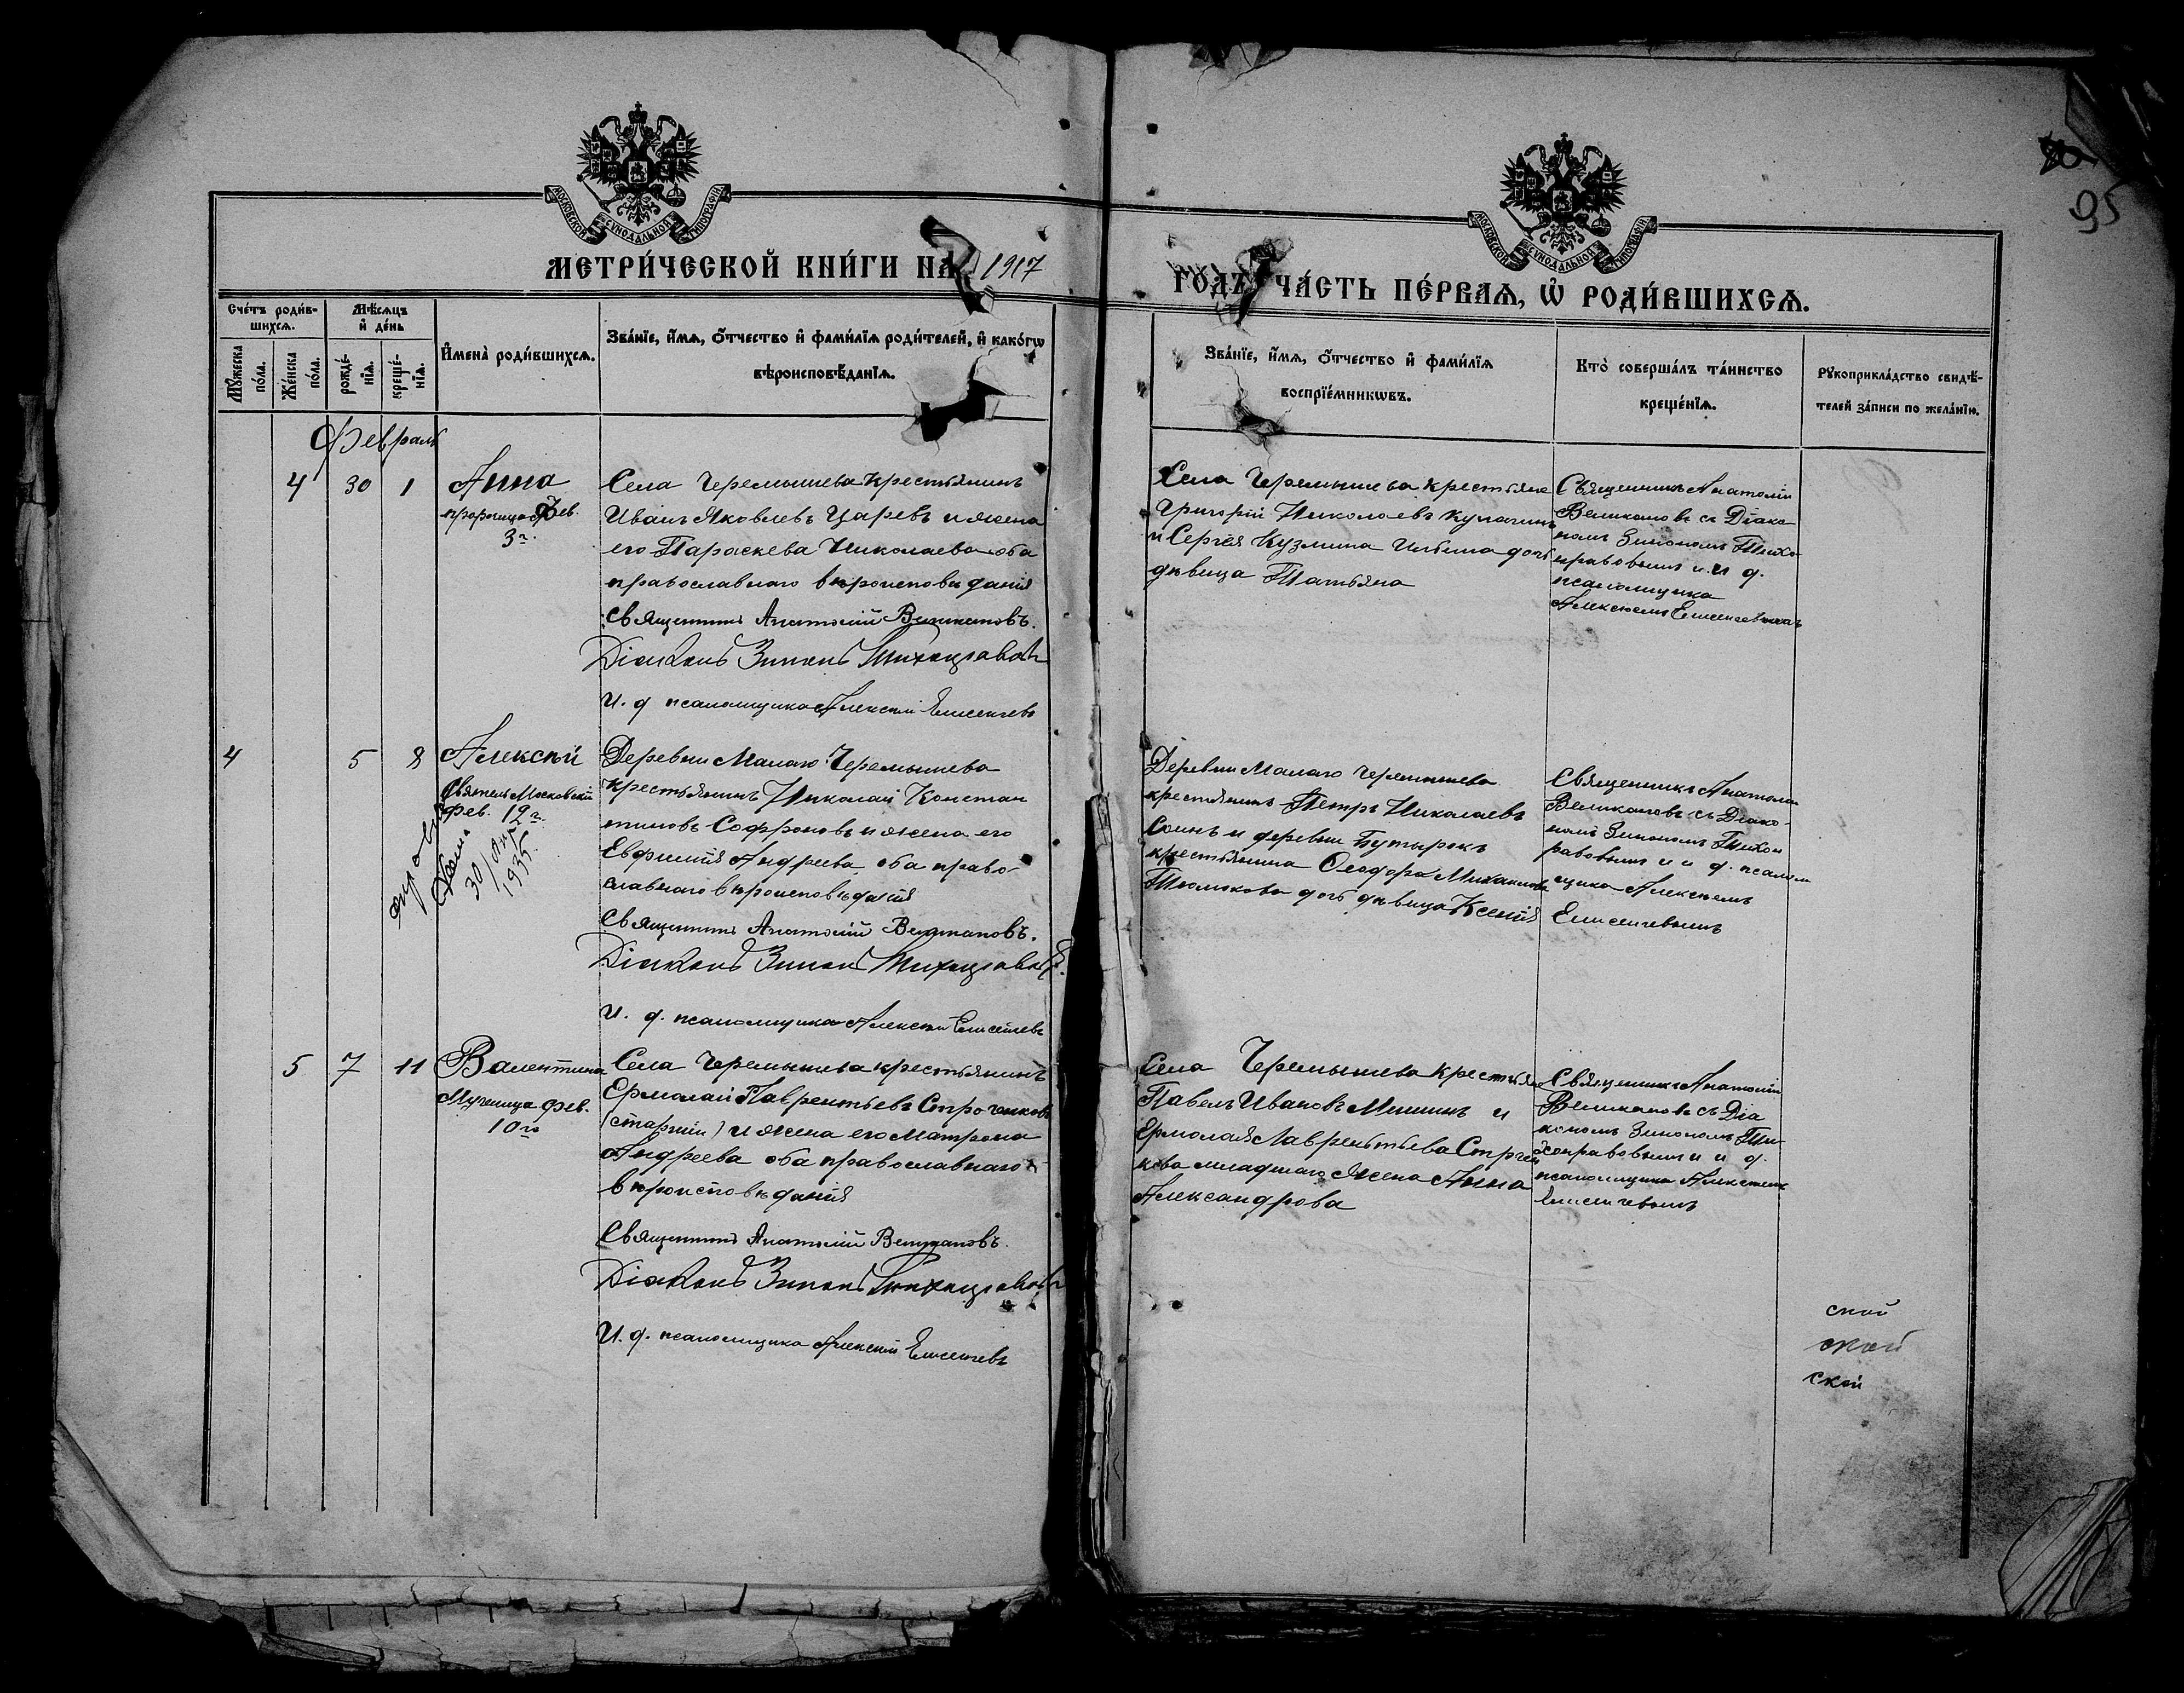 95
МОСКОВСКОЙ СѴНОДАЛЬНОЙ ТИПОГРАФІИ
МОСКОВСКОЙ СѴНОДАЛЬНОЙ ТИПОГРАФІИ
МЕТРИ́ЧЕСКОЙ КНИ́ГИ НА 1917
ГОДЪ ЧА́СТЬ ПЕ́РВАѦ, Ѡ҆ РОДИ́ВШИХСѦ.
Сче́тъ роди́в-
шихсѧ.
Мꙋ́жеска
по́ла.
Же́нска
по́ла.
Мѣ́сѧцъ
и҆ де́нь
рожде́-
нїѧ.
креще́-
нїѧ.
И҆мена̀ роди́вшихсѧ.
Зва́нїе, и҆́мѧ, ѻ҆́тчество и҆ фами́лїѧ роди́телей, и҆ како́гѡ
вѣроисповѣ́данїѧ.
Зва́нїе, и҆́мѧ, ѻ҆́тчество и҆ фами́лїѧ
воспрїе́мникѡвъ.
Кто̀ соверша́лъ та́инство
креще́нїѧ.
Рꙋкоприкла́дство свидѣ́-
телей за́писи по жела́нїю.
Февраль
4 30 1
Анна
пророчица Фев.
3го
Села Черемышева крестьянинъ
Иванъ Яковлевъ Царевъ и жена
его Параскева Николаева оба
православнаго вѣроисповѣданія
Священникъ Анатолій Великановъ.
Діаконъ Зинонъ Тихонравовъ
И. д псаломщика Алексѣй Елисеичевъ
Села Черемышева крестьяне
Григорій Николаевъ
и Сергѣя Кузмина дочь
дѣвица Татьяна
Священникъ Анатолій
Великановъ съ Діако
номъ Зинономъ Тихо
нравовымъ и и д.
псаломщика
Алексѣемъ Елисеичевымъ
4 5 8
Алексѣй
Святитель Московскій
Фев. 12го
30/
1935.
Деревни Малаго Черемышева
крестьянинъ Николай Констан
тиновъ Софроновъ и жена его
Евфимія Андреева оба право-
славнаго вѣроисповѣданія
Священникъ Анатолій Великановъ.
Діаконъ Зинонъ Тихонравовъ.
И. д. псаломщика Алексѣй Елисеичевъ
Деревни Малаго Черемышева
крестьянинъ Петръ Николаевъ
и деревни Бутырокъ
крестьянина Ѳеодора Михаилова
дочь дѣвица Ксенія
Священникъ Анатолій
Великановъ съ Діако-
номъ Зинономъ Тихон
равовымъ и и д. псалом
щика Алексѣемъ
Елисеичевымъ
5 7 11
Валентина
Мученица Фев.
10го
Села Черемышева крестьянинъ
Ермолай Лаврентьевъ Строчковъ
(старшій) и жена его Матрона
Андреева оба православнаго
вѣроисповѣданія
Священникъ Анатолій Великановъ.
Діаконъ Зинонъ Тихонравовъ
И. д. псаломщика Алексѣй Елисеичевъ
Села Черемышева крестьяне
Павелъ Ивановъ Мишинъ и
Ермолая Лаврентьева
младшаго жена Анна
Александрова
Священникъ Анатолій
Великановъ съ Діа
кономъ Зинономъ Ти-
хонравовымъ и и д.
псаломщика Алексѣемъ
Елисеичевымъ
ской
ской
ской